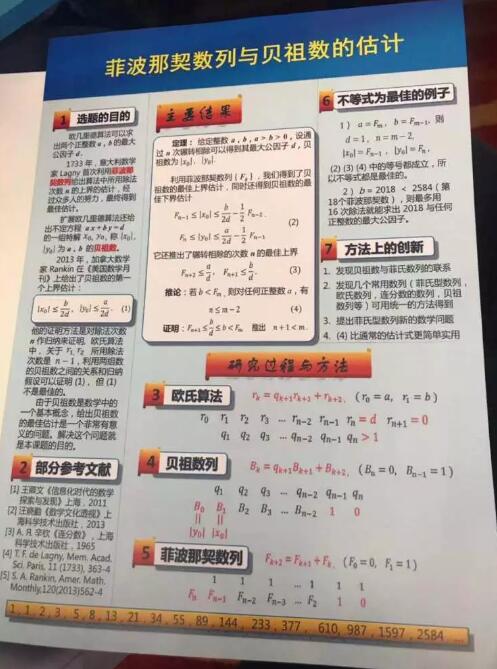 菲波那契数列与贝祖数的估计
1 选题的目的
欧几里德算法可以求
出两个正整数 a , b 的最大
公因子 d .
1733 年，意大利数学
家 Lagny 首次利用菲波那
契数列给出算法中所用除法
次数 n 的上界的估计，经
过众多人的努力，最终得到
最佳估计。
扩展欧几里德算法还给
出不定方程 ax+by=d
的一组特解 x₀, y₀, 称 |x₀|,
|y₀| 为 a , b 的贝祖数。
2013 年，加拿大数学
家 Rankin 在《美国数学月
刊》上给出了贝祖数的第一
个上界估计：
|x₀| ≤ b/2d, |y₀| ≤ a/2d. (1)
他的证明方法是对除法次数
n 作归纳来证明. 欧氏算法
中，关于 r₁, r₂ 所用除法
次数是 n − 1 , 利用两组数
的贝祖数之间的关系和归纳
假设可以证明 (1)，但 (1)
不是最佳的。
由于贝祖数是数学中的
一个基本概念，给出贝祖数
的最佳估计是一个非常有意
义的问题。解决这个问题就
是本课题的目的。
2 部分参考文献
[1] 王雍文《信息化时代的数学
探索与发现》上海，2011
[2] 汪晓勤《数学文化透视》上
海科学技术出版社，2013
[3] А. Я. 辛钦《连分数》，上海
科学技术出版社，1965
[4] T. F. de Lagny, Mem. Acad.
Sci. Paris, 11 (1733), 363-4
[5] S. A. Rankin, Amer. Math.
Monthly,120(2013)562-4
主要结果
定理： 给定整数 a , b , a > b > 0 , 设通
过 n 次辗转相除可以得到其最大公因子 d , 贝
祖数为 |x₀|, |y₀|.
利用菲波那契数列 { Fₖ } , 我们得到了贝
祖数的最佳上界估计，同时还得到贝祖数的最
佳下界估计
Fₙ₋₁ ≤ |x₀| ≤ b/2d − 1/2 Fₙ₋₂.
(2)
Fₙ ≤ |y₀| ≤ a/2d − 1/2 Fₙ₋₁
它还推出了辗转相除的次数 n 的最佳上界
Fₙ₊₂ ≤ a/d, Fₙ₊₁ ≤ b/d. (3)
推论： 若 b < Fₘ , 则对任何正整数 a , 有
n ≤ m − 2 (4)
证明： Fₙ₊₁ ≤ b/d ≤ b < Fₘ 推出 n + 1 < m .
6 不等式为最佳的例子
1 ) a = Fₘ , b = Fₘ₋₁, 则
d = 1, n = m − 2,
|x₀| = Fₙ₋₁ , |y₀| = Fₙ.
(2) (3) (4) 中的等号都成立，所
以不等式都是最佳的。
2 ) b = 2018 < 2584 ( 第
18个菲波那契数 ) , 则最多用
16 次除法就能求出 2018 与任何
正整数的最大公因子。
7 方法上的创新
1. 发现贝祖数与菲氏数列的联系
2. 发现几个常用数列（菲氏型数列，
欧氏数列，连分数的数列，贝祖
数列等）可用统一的方法得到
3. 提出菲氏型数列新的数学问题
4. (4) 比通常的估计式更简单实用
研究过程与方法
3 欧氏算法 rₖ = qₖ₊₁rₖ₊₁ + rₖ₊₂, ( r₀ = a, r₁ = b )
r₀ r₁ r₂ r₃ … rₙ₋₂ rₙ₋₁ rₙ = d rₙ₊₁ = 0
q₁ q₂ q₃ … qₙ₋₂ qₙ₋₁ qₙ > 1
4 贝祖数列 Bₖ = qₖ₊₁Bₖ₊₁ + Bₖ₊₂, ( Bₙ = 0, Bₙ₋₁ = 1 )
q₁ q₂ q₃ … qₙ₋₂ qₙ₋₁ qₙ
B₀ B₁ B₂ B₃ … Bₙ₋₂ 1 0
|| ||
|y₀| |x₀|
5 菲波那契数列 Fₖ₊₂ = Fₖ₊₁ + Fₖ, ( F₀ = 0, F₁ = 1 )
1 1 1 … 1 1 1
Fₙ Fₙ₋₁ Fₙ₋₂ Fₙ₋₃ … F₂ 1 0
1 , 1 , 2 , 3 , 5 , 8 , 13 , 21 , 34 , 55 , 89 , 144 , 233 , 377 , 610 , 987 , 1597 , 2584 ……